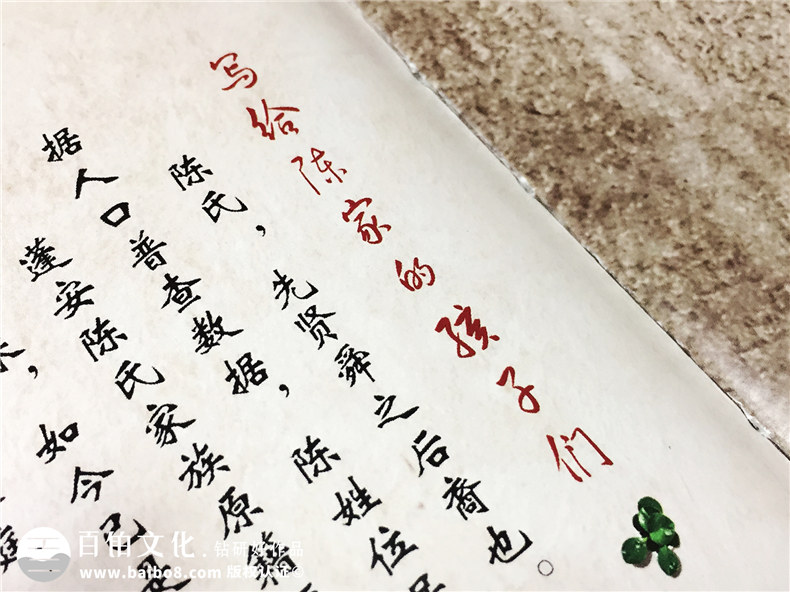 写给陈家的孩子们
陈氏，先贤舜之后裔也。
据人口普查数据，陈姓位
蓬安陈氏家族原籍
，如今已
百铂文化.钻研好作品
www.baibo8.com 版权认证©